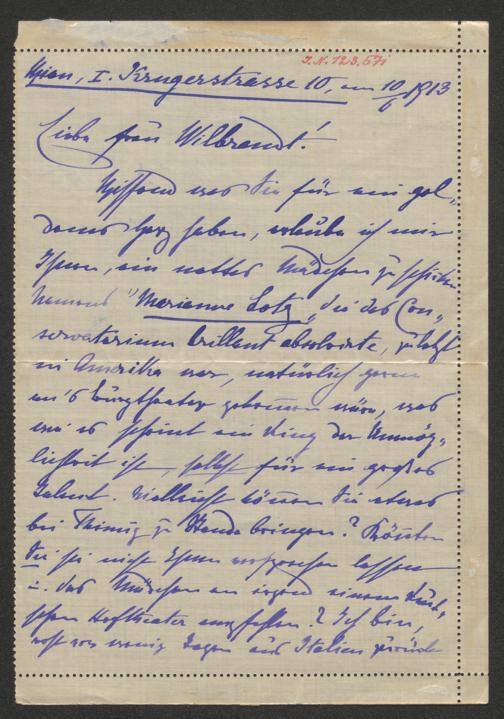 J.N. 123.571
Wien, I. Krugerstrasse 10, am 10/6 1913
Liebe Frau Wilbrandt!
Wissend was Sie für ein gol„
denes Herz haben, erlaube ich mir
Ihnen, ein nettes Mädchen zu schicken
Namens "Marianne Lotz" die das Con„
servatorium brillant absolvirte, zuletzt
in Amerika war, natürlich gerne
an's Burgtheater gekommen wäre, was
wie es scheint ein Ding der Unmög„
lichkeit ist, selbst für ein großes
Talent. Vielleicht können Sie etwas
bei Thimig zu Stande bringen? Könnten
Sie sie nicht Ihnen vorsprechen lassen
u. das Mädchen an irgend einem deut„
schen Hoftheater empfehlen? Ich bin,
erst vor wenig Tagen aus Italien zurück